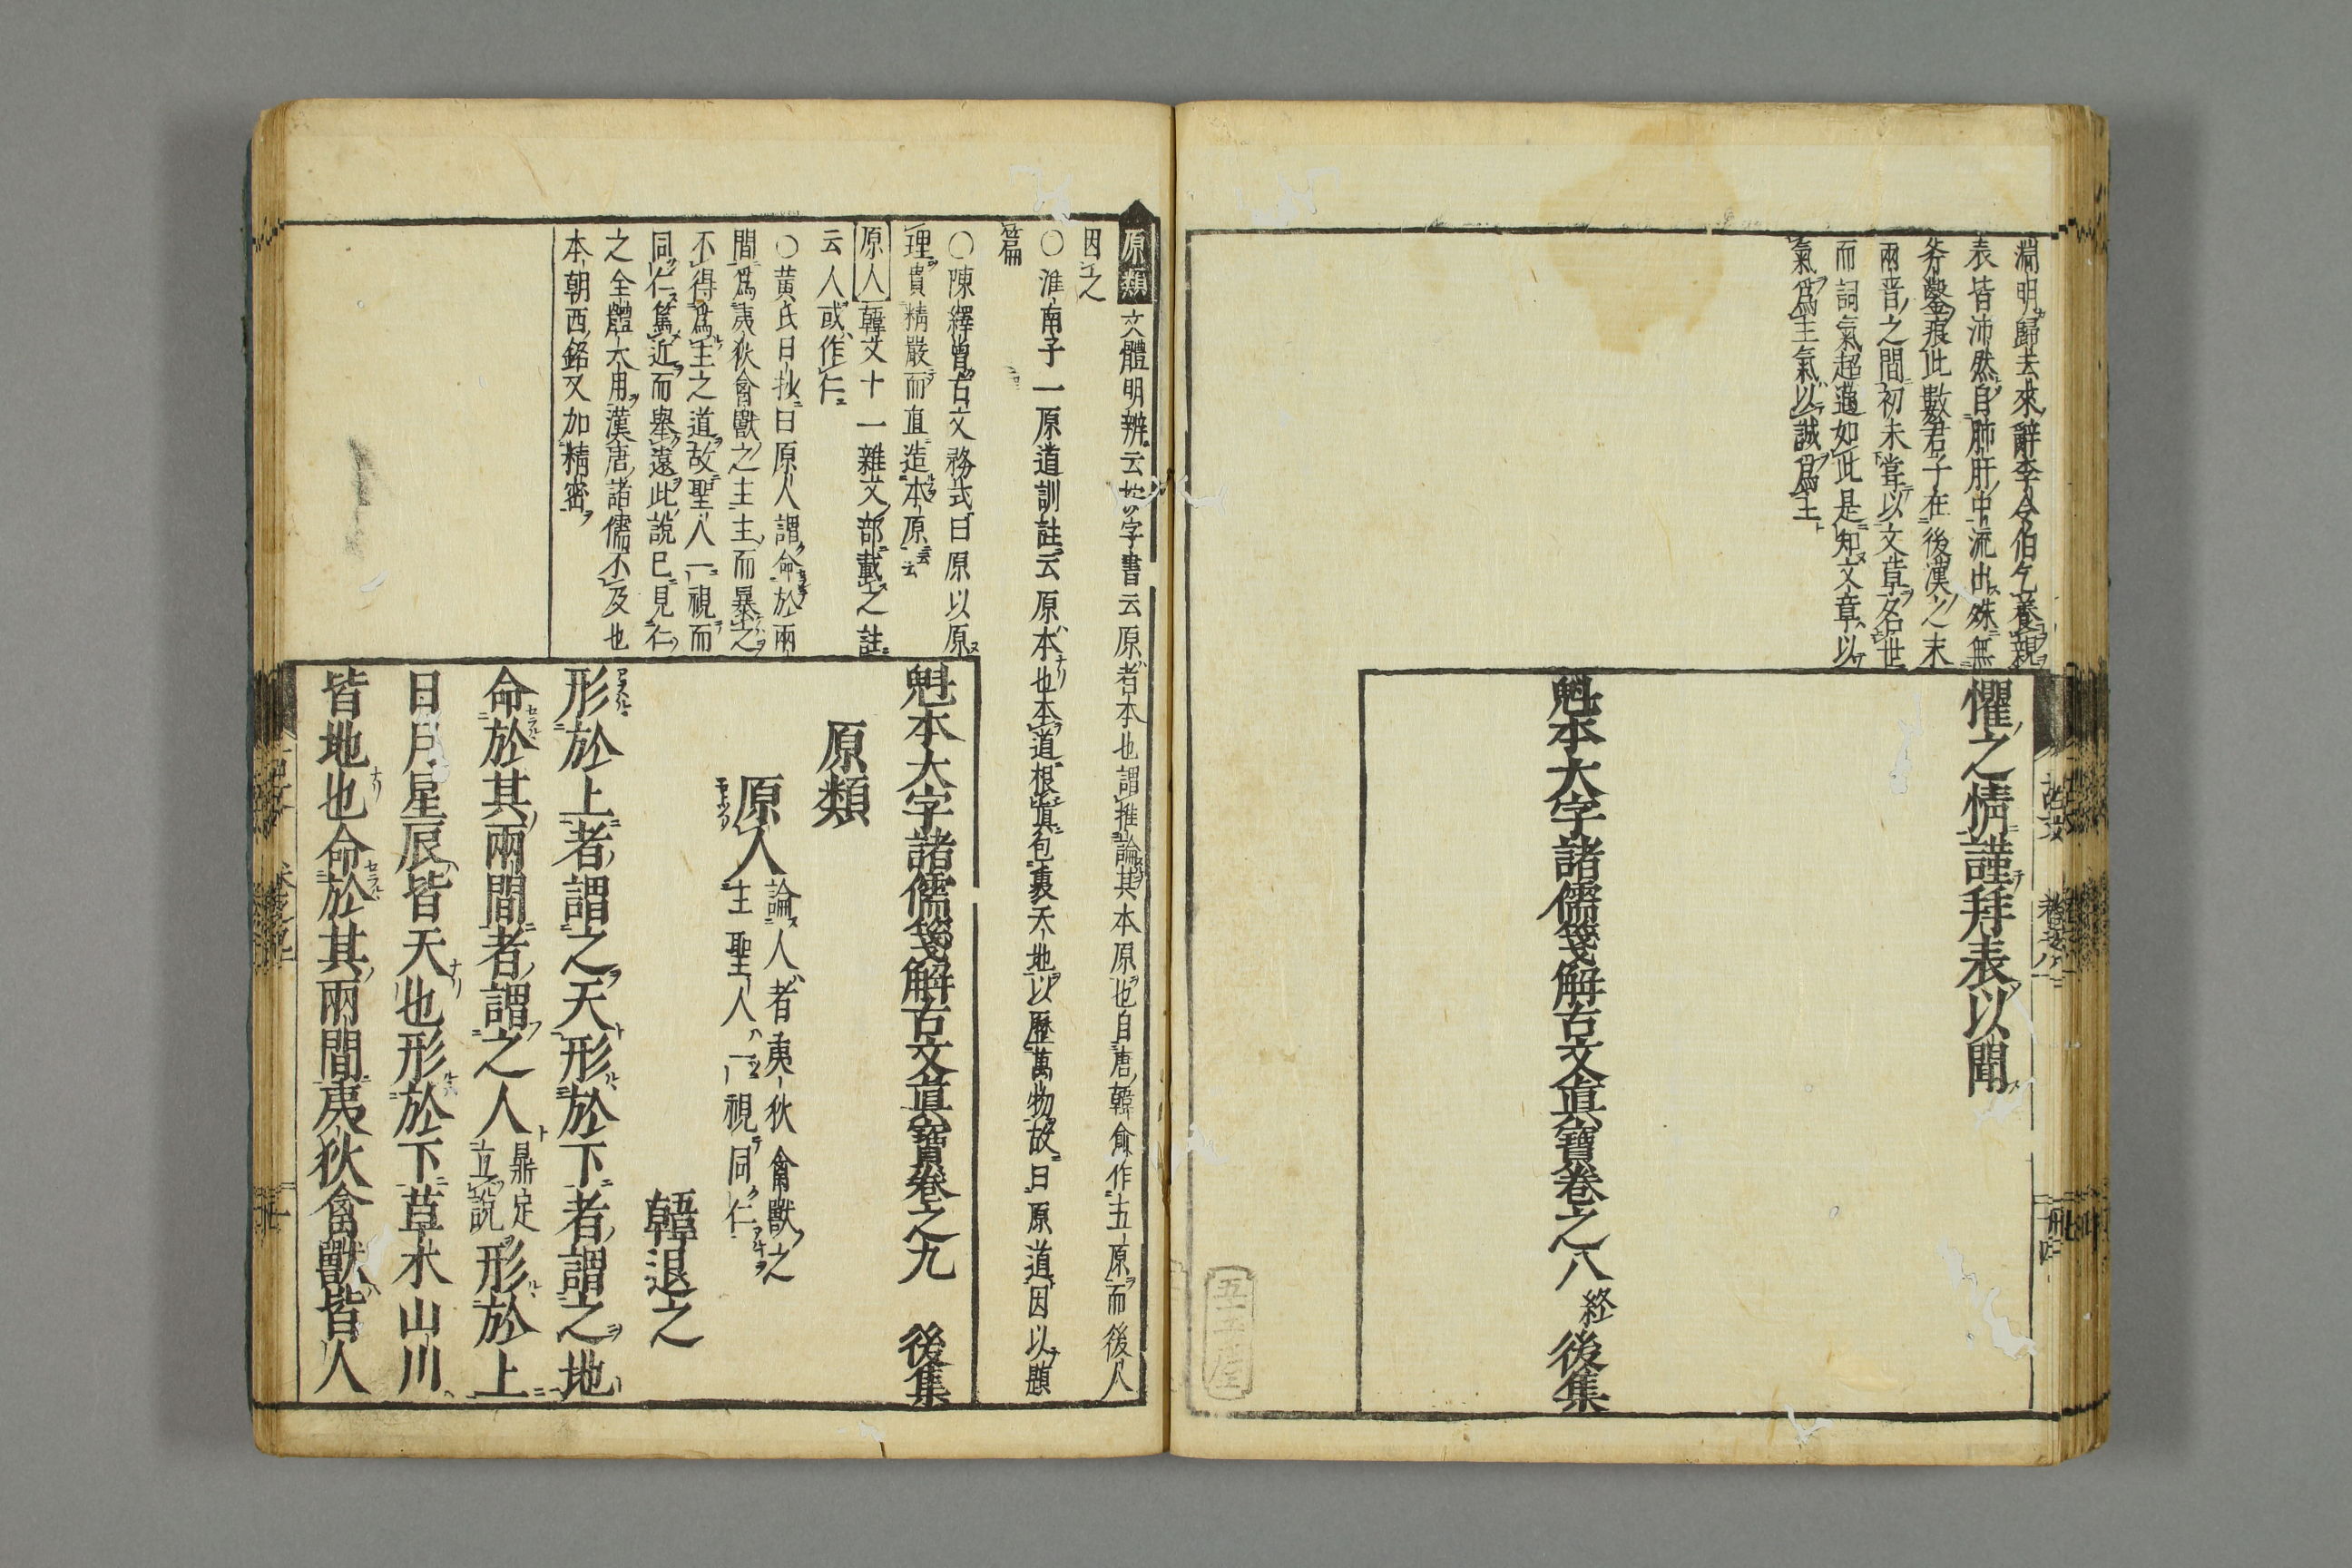 淵明歸去來辭李令伯乞養親
表皆沛然自肺肝中流出殊無
斧鑿痕此數君子在後漢之末
兩晉之間初未嘗以文章名世
而詞氣超邁如此是知文章以
氣爲主氣以誠爲主
懼之情謹拜表以聞
魁本大字諸儒箋解古文眞寶卷之八終 後集
原類 文體明辨云 字書云原者本也謂推論其本原也自唐韓愈作五原而後人
因之
○淮南子一原道訓註云原本也本道根眞包裹天地以歷萬物故曰原道因以題
篇
○陳繹曾古文務式曰原以原
理貴精嚴而直造本原云云
原人 韓文十一雜文部載之註
云人或作仁
○黄氏日抄曰原人謂命於兩
間爲夷狄禽獸之主主而暴之
不得爲主之道故聖人一視而
同仁篤近而舉遠此說已見仁
之全體大用漢唐諸儒不及也
本朝西銘又加精密
魁本大字諸儒箋解古文眞寶卷之九 後集
原類
原人 論人者夷狄禽獸之
主聖人一視同仁
韓退之
形於上者謂之天形於下者謂之地
命於其兩間者謂之人鼎定立說形於上
日月星辰皆天也形於下草木山川
皆地也命於其兩間夷狄禽獸皆人